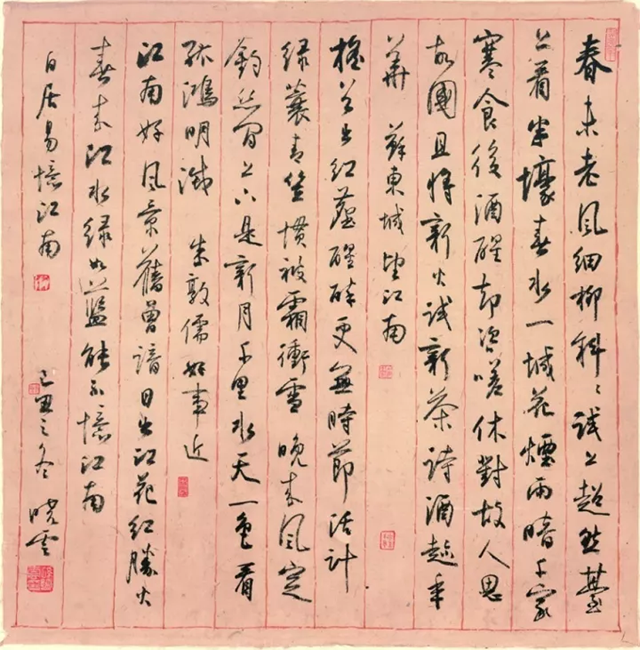 春未老風細柳斜〻試上超然臺
上看半壕春水一城花煙雨暗千家
寒食後酒醒却咨嗟休對故人思
故國且將新火試新茶詩酒趁年
華 蘇東坡望江南
搖首出紅塵醒醉更無時節活計
綠蓑青笠慣被霜衝雪晚來風定
釣絲閒上下是新月千里水天一色看
孤鴻明滅 朱敦儒好事近
江南好風景舊曾諳日出江花紅勝火
春來江水綠如藍能不憶江南
白居易憶江南 己丑之冬 晓雲